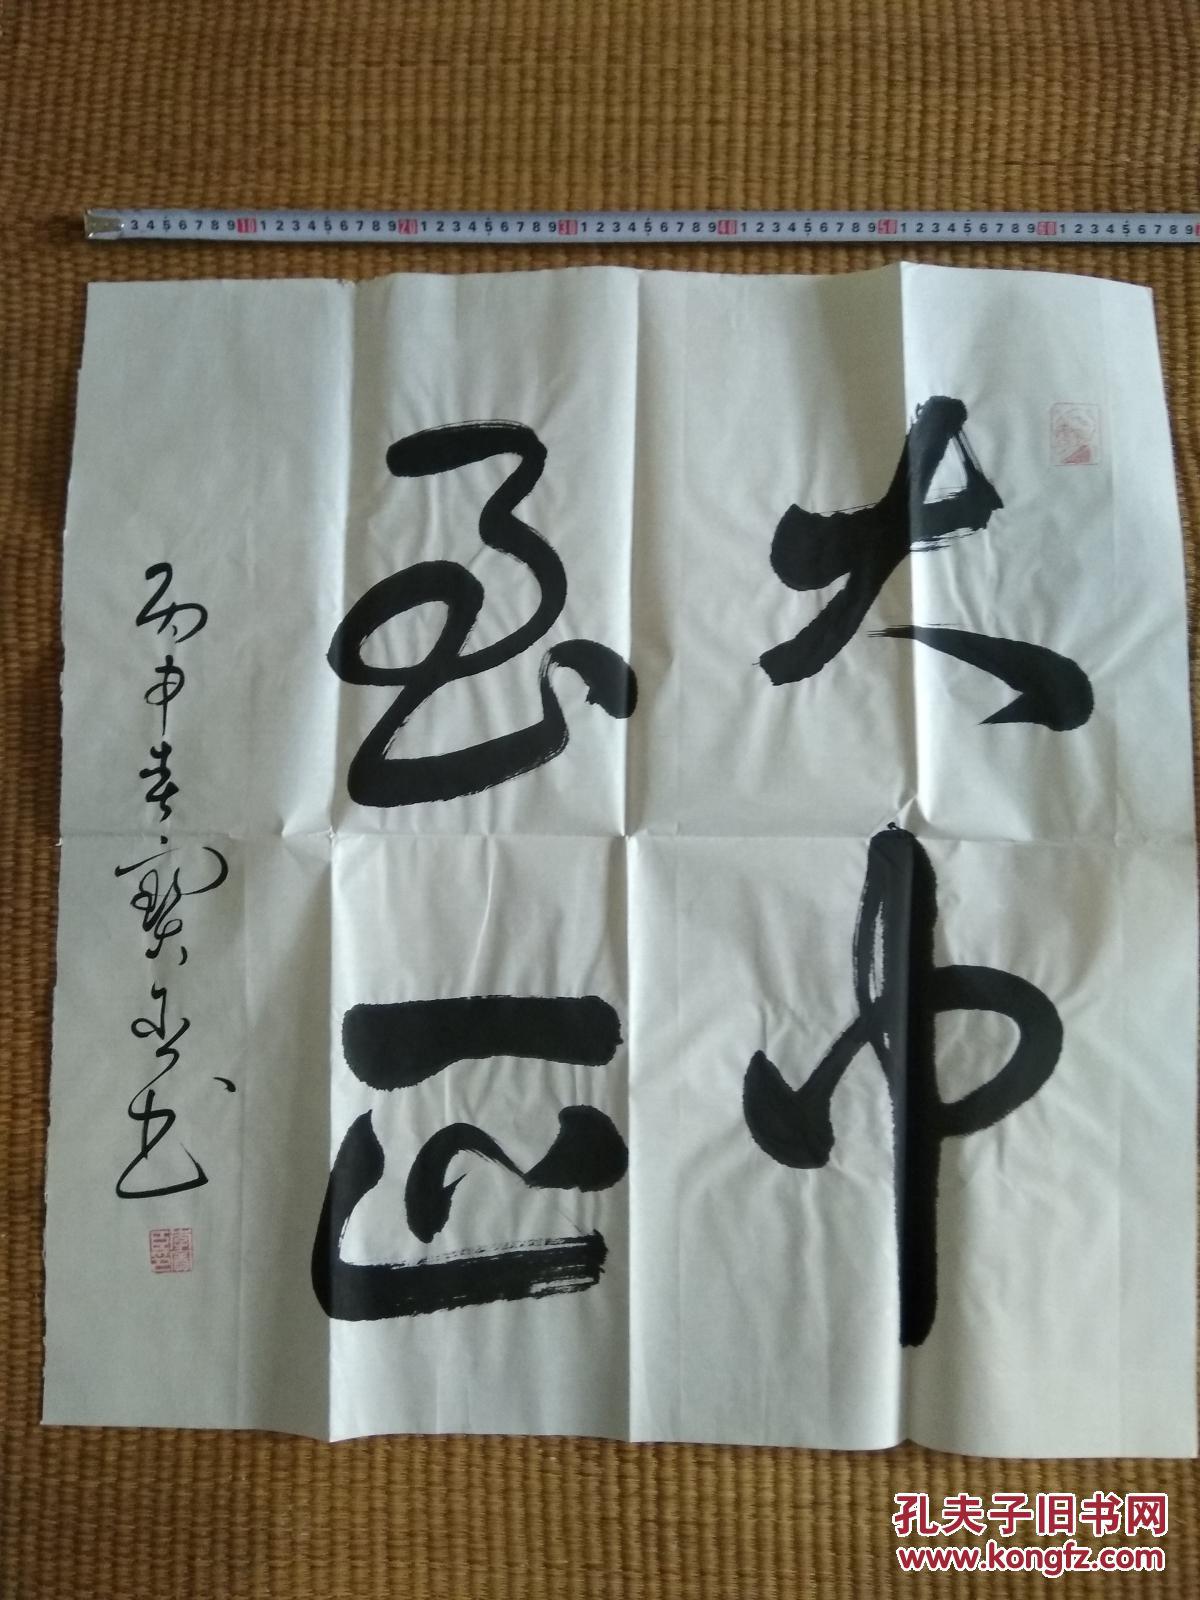 大中
至正
丙申春寶玉书
3 4 5 6 7 8 9 10 1 2 3 4 5 6 7 8 9 20 1 2 3 4 5 6 7 8 9 30 1 2 3 4 5 6 7 8 9 40 1 2 3 4 5 6 7 8 9 50 1 2 3 4 5 6 7 8 9 60 1 2 3 4 5 6 7 8 9
孔夫子旧书网
www.kongfz.com